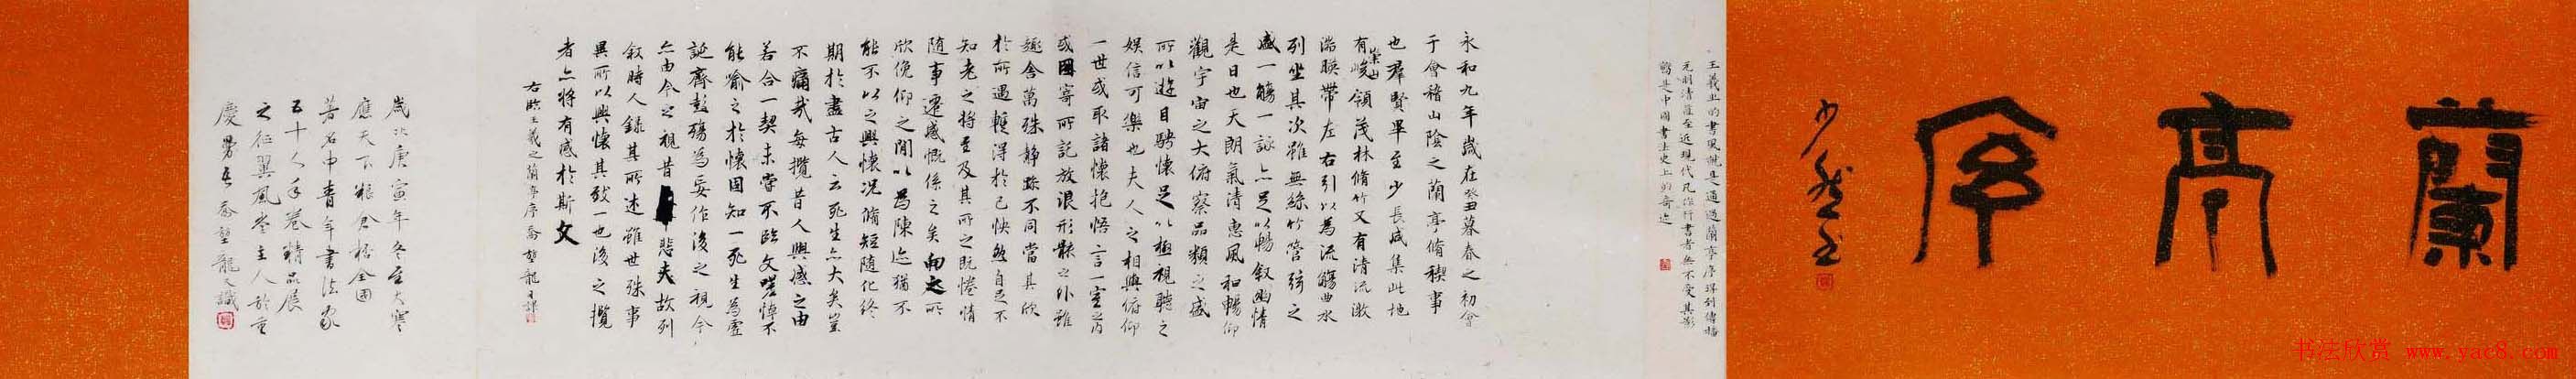 蘭亭序
王羲之的書風就是通過蘭亭序得到傳播
元明清直至近現代凡作行書者無不受其影
響是中國書法史上的奇迹
永和九年歲在癸丑暮春之初會
于會稽山陰之蘭亭脩禊事
也羣賢畢至少長咸集此地
有崇山峻領茂林脩竹又有清流激
湍暎帶左右引以為流觴曲水
列坐其次雖無絲竹管弦之
盛一觴一詠亦足以暢叙幽情
是日也天朗氣清惠風和暢仰
觀宇宙之大俯察品類之盛
所以遊目騁懷足以極視聽之
娛信可樂也夫人之相與俯仰
一世或取諸懷抱悟言一室之內
或因寄所託放浪形骸之外雖
趣舍萬殊靜躁不同當其欣
於所遇蹔得於己怏然自足不
知老之將至及其所之既惓情
隨事遷感慨係之矣向之所
欣俛仰之間以為陳迹猶不
能不以之興懷況脩短隨化終
期於盡古人云死生亦大矣豈
不痛哉每攬昔人興感之由
若合一契未甞不臨文嗟悼不
能喻之於懷固知一死生為虛
誕齊彭殤為妄作後之視今
亦由今之視昔悲夫故列
叙時人錄其所述雖世殊事
異所以興懷其致一也後之攬
者亦將有感於斯文
右臨王羲之蘭亭序喬龍又課
歲次庚寅年冬至大寒
應天下糧倉杯全國
著名中青年書法家
五十人手卷精品展
之征翼風堂主人於重
慶喬龍又識
书法欣赏 www.yac8.com